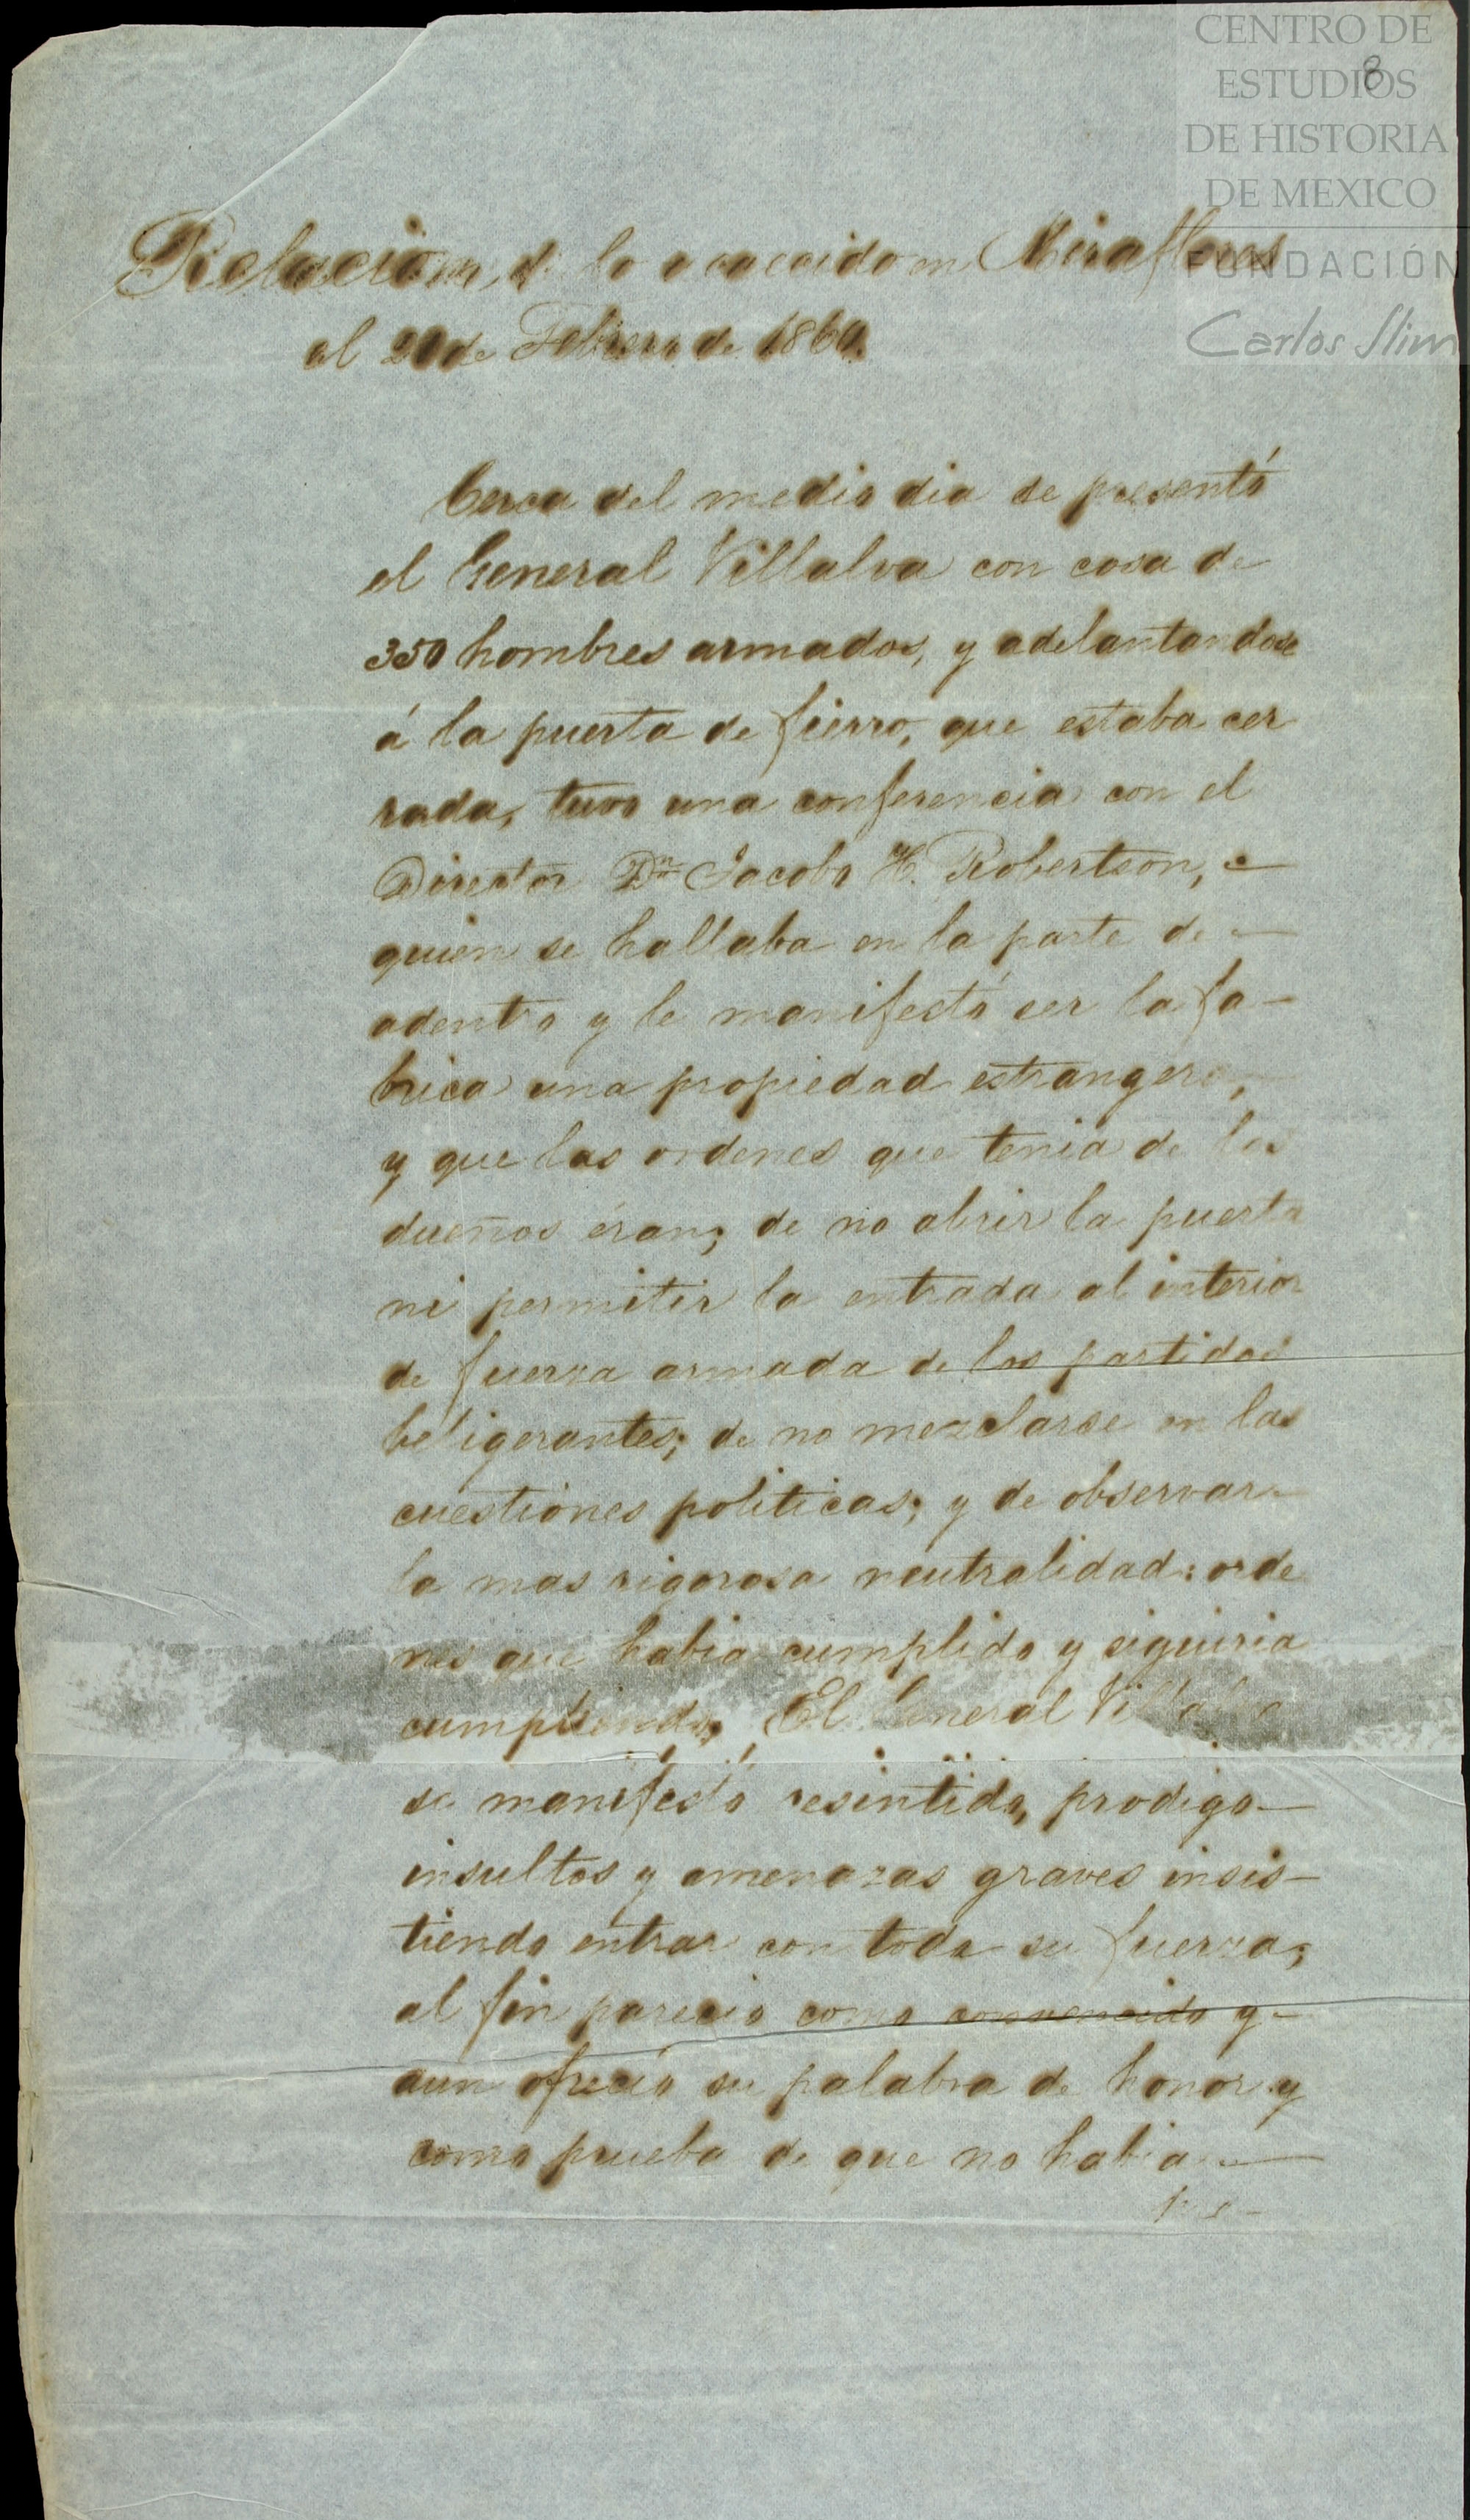 CENTRO DE
ESTUDIOS
DE HISTORIA
DE MEXICO
FUNDACIÓN
Carlos Slim
8
Relacion de lo acaecido en Miraflores
el 20 de Febrero de 1860.
Cerca del medio dia se presentó
el General Villalva con cosa de
350 hombres armados, y adelantandose
á la puerta de fierro, que estaba cer
rada, tuvo una conferencia con el
Director Dn Jacobo H. Robertson,
quien se hallaba en la parte de
adentro y le manifestó ser la fa-
brica una propiedad estrangera,
y que las ordenes que tenia de los
dueños éran; de no abrir la puerta
ni permitir la entrada al interior
de fuerza armada de los partidos
beligerantes; de no mezclarse en las
cuestiones politicas; y de observar
la mas rigorosa neutralidad: orde
nes que habia cumplido y siguiria
cumpliendo. El General Villalva
se manifestó resintido, prodigo
insultos y amenazas graves insis-
tiendo entrar con toda su fuerza;
al fin parecio como convencido y
aun ofrecio su palabra de honor y
como prueba de que no habia